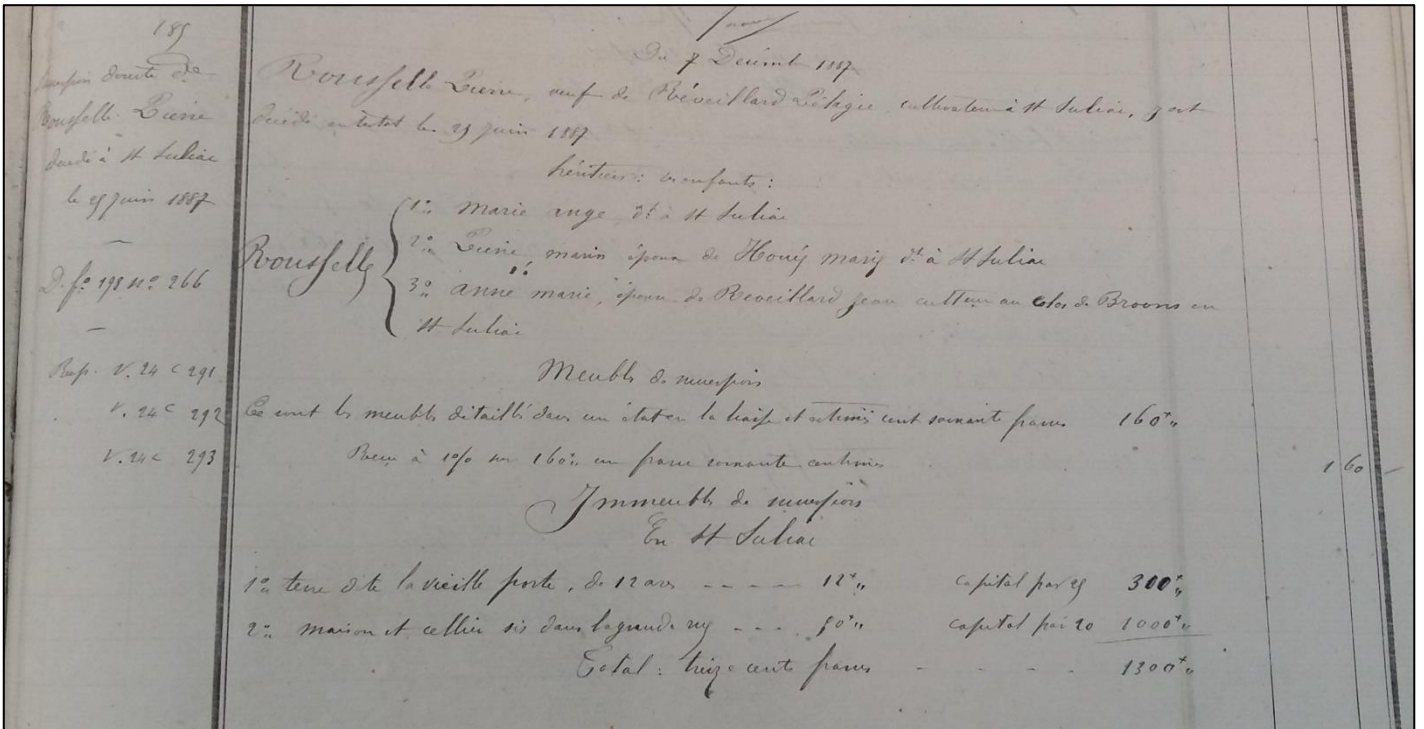 189
Du 7 Décembre 1887
Succession directe de
Rousselle Pierre
décédé à St Suliac
le 29 juin 1887
D. f° 198 n° 266
Rép. V. 24 C 291
V. 24 C 292
V. 24 C 293
Rousselle Pierre, veuf de Réveillard Pélagie cultivateur à St Suliac, y est
décédé intestat le 29 juin 1887
héritiers : ses enfants :
Rousselle
1° Marie ange dt à St Suliac
2° Pierre, marin époux de Houy marie dt à St Suliac
3° anne marie, épouse de Reveillard jean cultteur au clos de Broons en
St Suliac
Meubles de succession
Ce sont les meubles détaillés dans un état en la liasse et estimés cent soixante francs 160f "
Reçu à 1% sur 160f un franc soixante centimes 1 60
Immeubles de succession
En St Suliac
1° terre dite la vieille porte, de 12 ares - - - - 12f " capital par 25 300f "
2° maison et cellier sis dans la grande rue - - - 50f " capital par 20 1000f "
Total : treize cents francs - - - - 1300f "